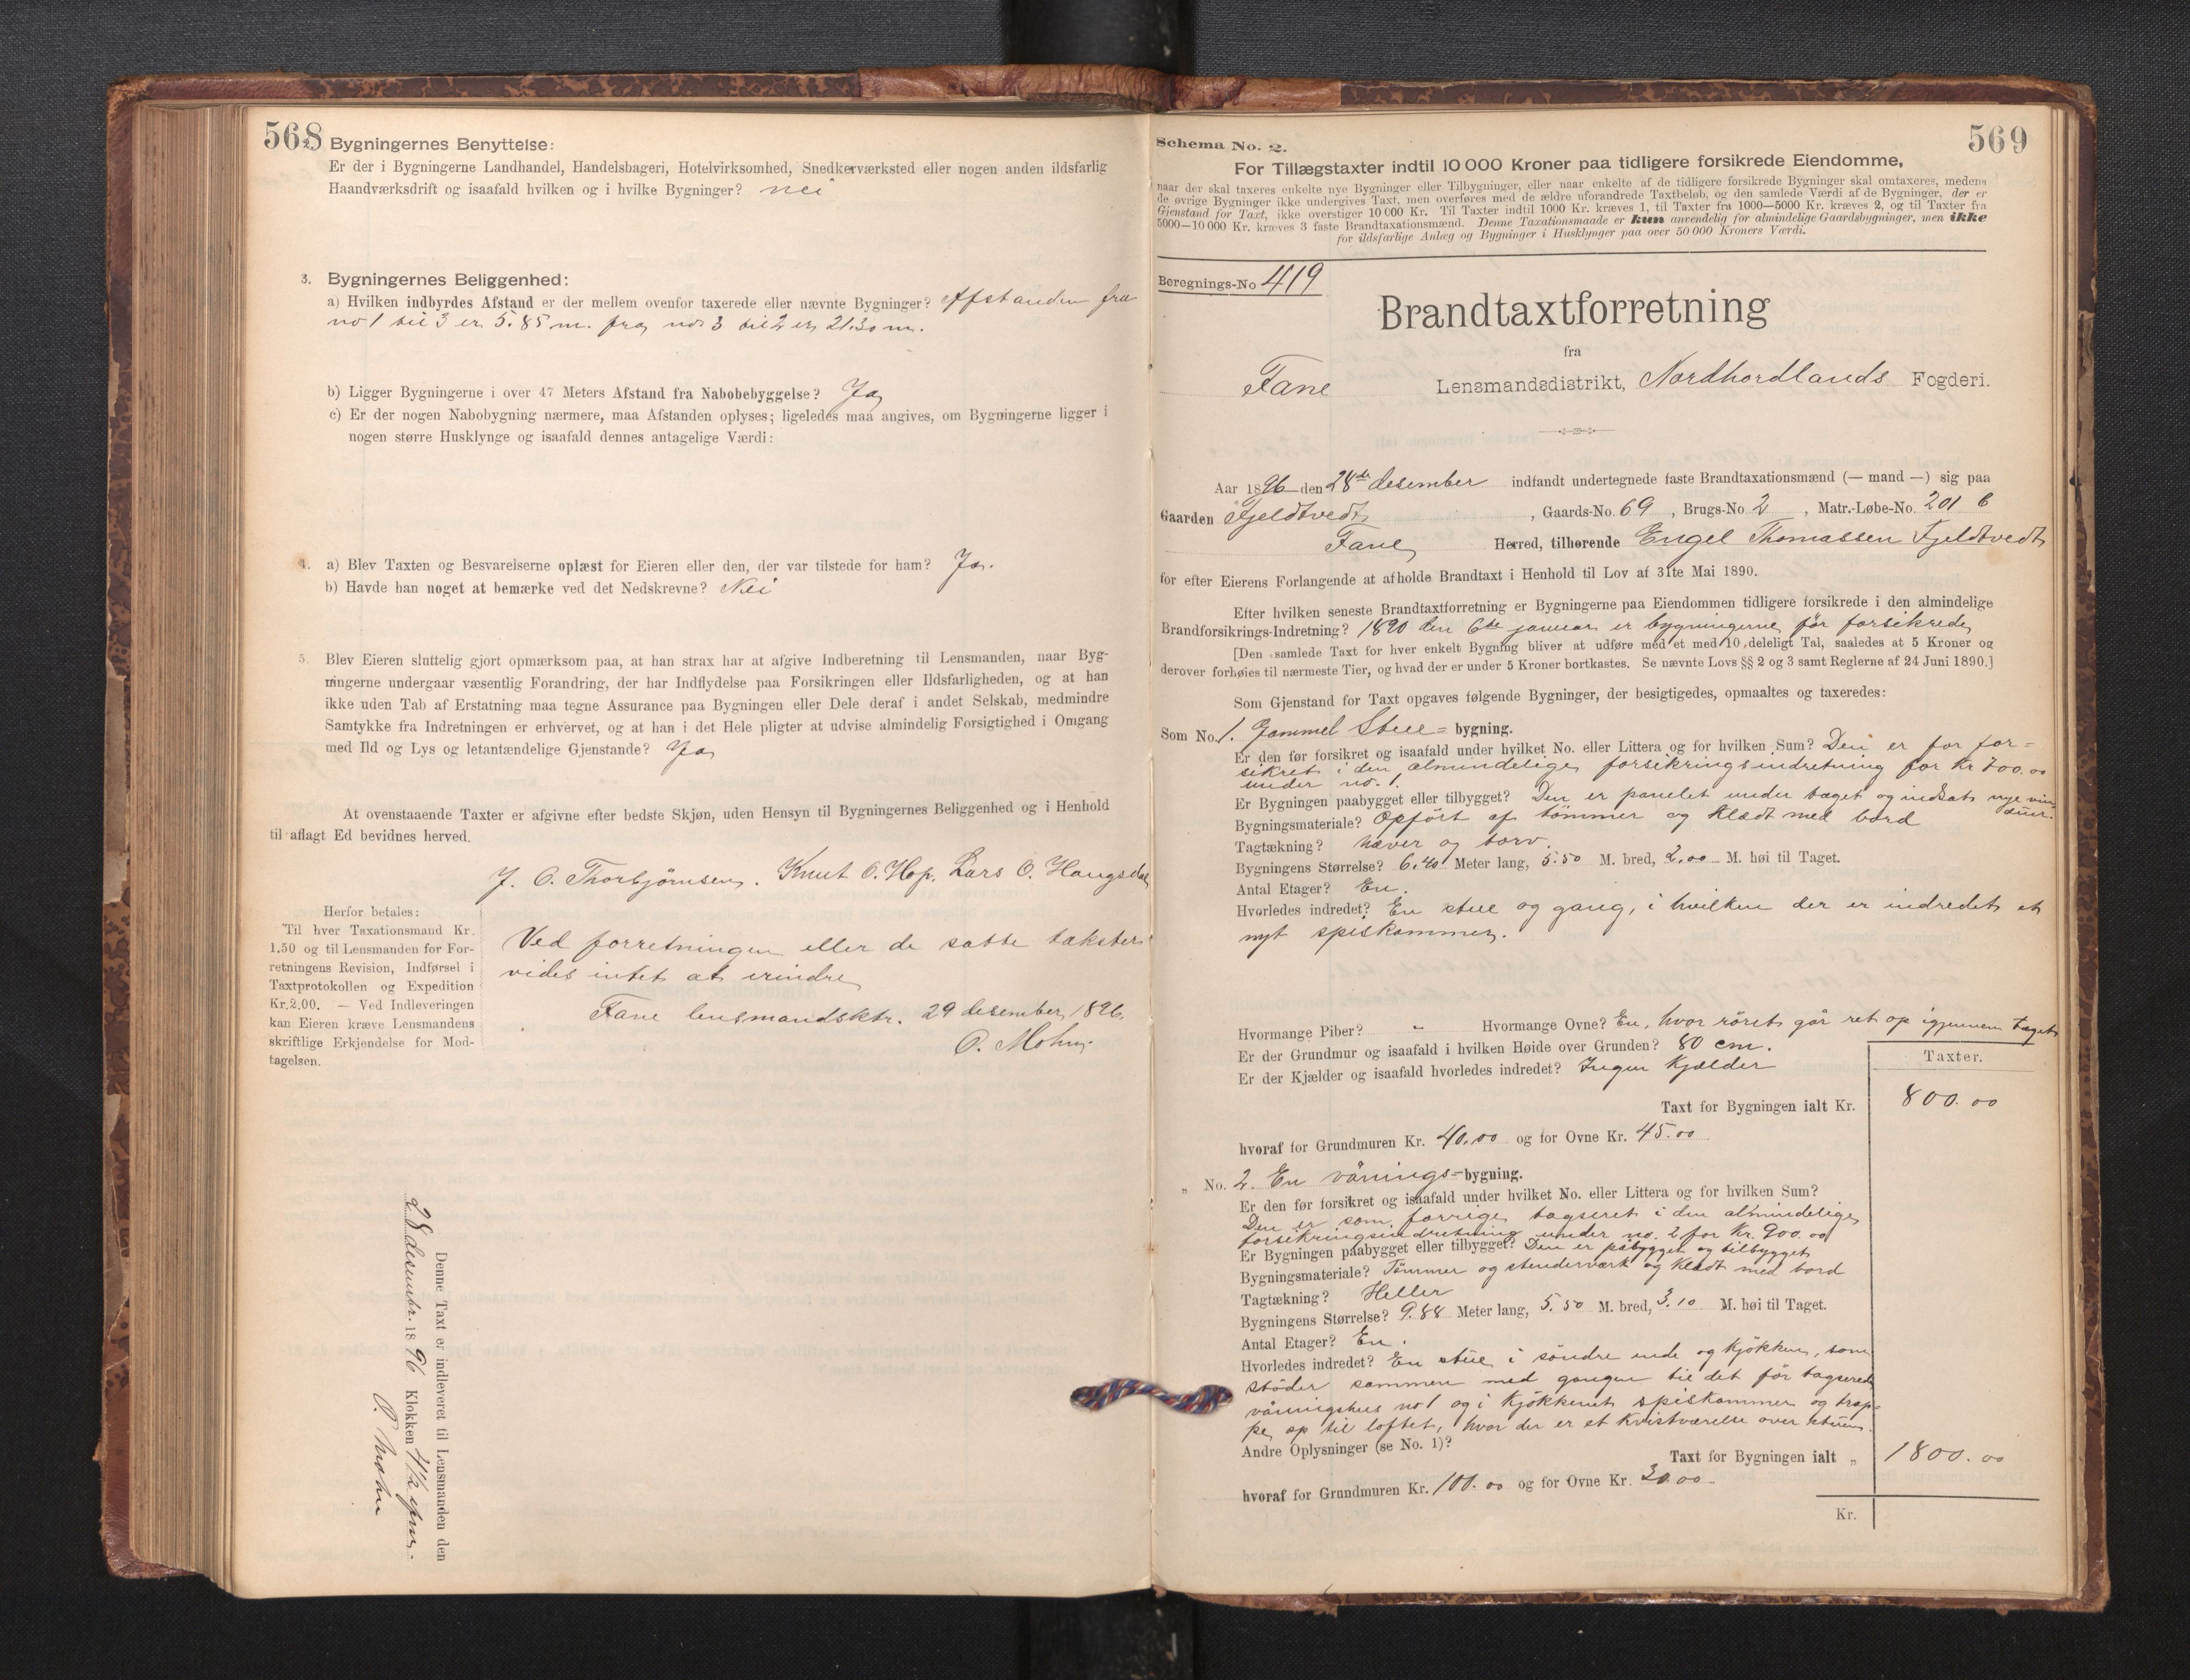 568
2. Bygningernes Benyttelse:
Er der i Bygningerne Landhandel, Handelsbageri, Hotelvirksomhed, Snedkerværksted eller nogen anden ildsfarlig
Haandværksdrift og isaafald hvilken og i hvilke Bygninger? nei
3. Bygningernes Beliggenhed:
a) Hvilken indbyrdes Afstand er der mellem ovenfor taxerede eller nævnte Bygninger? Afstanden fra
no 1 til 3 er 5.85 m. fra no 3 til 2 er 21.30 m.
b) Ligger Bygningerne i over 47 Meters Afstand fra Nabobebyggelse? Ja
c) Er der nogen Nabobygning nærmere, maa Afstanden oplyses; ligeledes maa angives, om Bygningerne ligger i
nogen større Husklynge og isaafald dennes antagelige Værdi:
4. a) Blev Taxten og Besvarelserne oplæst for Eieren eller den, der var tilstede for ham? Ja.
b) Havde han noget at bemærke ved det Nedskrevne? Nei
5. Blev Eieren sluttelig gjort opmærksom paa, at han strax har at afgive Indberetning til Lensmanden, naar Byg-
ningerne undergaar væsentlig Forandring, der har Indflydelse paa Forsikringen eller Ildsfarligheden, og at han
ikke uden Tab af Erstatning maa tegne Assurance paa Bygningen eller Dele deraf i andet Selskab, medmindre
Samtykke fra Indretningen er erhvervet, og at han i det Hele pligter at udvise almindelig Forsigtighed i Omgang
med Ild og Lys og letantændelige Gjenstande? Ja
At ovenstaaende Taxter er afgivne efter bedste Skjøn, uden Hensyn til Bygningernes Beliggenhed og i Henhold
til aflagt Ed bevidnes herved.
J. O. Thorbjørnsen. Knut O. Hop. Lars O. Haugsdal
Herfor betales:
Til hver Taxationsmand Kr.
1.50 og til Lensmanden for For-
retningens Revision, Indførsel i
Taxtprotokollen og Expedition
Kr. 2.00. — Ved Indleveringen
kan Eieren kræve Lensmandens
skriftlige Erkjendelse for Mod-
tagelsen.
Ved forretningen eller de satte takster
vides intet at erindre
Fane lensmandsktr. 29 desember 1896.
O. Mohn.
Denne Taxt er indleveret til Lensmanden den
28 desembr. 1896 Klokken 4½ efm.
O. Mohn
569
Schema No. 2.
For Tillægstaxter indtil 10 000 Kroner paa tidligere forsikrede Eiendomme,
naar der skal taxeres enkelte nye Bygninger eller Tilbygninger, eller naar enkelte af de tidligere forsikrede Bygninger skal omtaxeres, medens
de øvrige Bygninger ikke undergives Taxt, men overføres med de ældre uforandrede Taxtbeløb, og den samlede Værdi af de Bygninger, der er
Gjenstand for Taxt, ikke overstiger 10 000 Kr. Til Taxter indtil 1000 Kr. kræves 1, til Taxter fra 1000—5000 Kr. kræves 2, og til Taxter fra
5000—10 000 Kr. kræves 3 faste Brandtaxationsmænd. Denne Taxationsmaade er kun anvendelig for almindelige Gaardsbygninger, men ikke
for ildsfarlige Anlæg og Bygninger i Husklynger paa over 50 000 Kroners Værdi.
Beregnings-No 419
Brandtaxtforretning
fra
Fane Lensmandsdistrikt, Nordhordlands Fogderi.
Aar 1896 den 28de desember indfandt undertegnede faste Brandtaxationsmænd (— mand —) sig paa
Gaarden Fjeldtvedt, Gaards-No. 69, Brugs-No 2, Matr.-Løbe-No. 201 b
Fane Herred, tilhørende Engel Thomassen Fjeldtvedt
for efter Eierens Forlangende at afholde Brandtaxt i Henhold til Lov af 31te Mai 1890.
Efter hvilken seneste Brandtaxtforretning er Bygningerne paa Eiendommen tidligere forsikrede i den almindelige
Brandforsikrings-Indretning? 1890 den 6te januar er bygningerne før forsikrede
[Den samlede Taxt for hver enkelt Bygning bliver at udføre med et med 10 deleligt Tal, saaledes at 5 Kroner og
derover forhøies til nærmeste Tier, og hvad der er under 5 Kroner bortkastes. Se nævnte Lovs §§ 2 og 3 samt Reglerne af 24 Juni 1890.]
Som Gjenstand for Taxt opgaves følgende Bygninger, der besigtigedes, opmaaltes og taxeredes:
Som No. 1. Gammel Stue=bygning.
Er den før forsikret og isaafald under hvilket No. eller Littera og for hvilken Sum? Den er før for=
sikret i den almindelige forsikringsindretning for Kr 700.00
under no. 1.
Er Bygningen paabygget eller tilbygget? Den er panelet under taget og indsat nye vin
duer.
Bygningsmateriale? Opført af tømmer og klædt med bord
Tagtækning? næver og torv.
Bygningens Størrelse? 6.40 Meter lang, 5.50 M. bred, 2.00 M. høi til Taget.
Antal Etager? En.
Hvorledes indredet? En stue og gang, i hvilken der er indredet et
nyt spiskammer.
Hvormange Piber? " Hvormange Ovne? En, hvor röret går ret op igjennem taget
Er der Grundmur og isaafald i hvilken Høide over Grunden? 80 cm.
Er der Kjælder og isaafald hvorledes indredet? Ingen Kjælder
Taxter.
Taxt for Bygningen ialt Kr. 800.00
hvoraf for Grundmuren Kr. 40.00 og for Ovne Kr. 45.00
„ No. 2. En vånings=bygning.
Er den før forsikret og isaafald under hvilket No. eller Littera og for hvilken Sum?
Den er som forrige tagseret i den almindelige
forsikringsindretning under no. 2 for Kr. 900.00
Er Bygningen paabygget eller tilbygget? Den er påbygget og tilbygget
Bygningsmateriale? Tømmer og stenderværk og klædt med bord
Tagtækning? Heller
Bygningens Størrelse? 9.88 Meter lang, 5.50 M. bred, 3.10 M. høi til Taget.
Antal Etager? En.
Hvorledes indredet? En stue i söndre ende og kjökken, som
stöder sammen med gangen til det för tagserede
våningshus no 1 og i Kjökkenet spiskammer og trap=
pe op til loftet, hvor der er et kvistværelse over stuen.
Andre Oplysninger (se No. 1)?
Taxt for Bygningen ialt „ 1800.00
hvoraf for Grundmuren Kr. 100.00 og for Ovne Kr. 30.00
Kr.